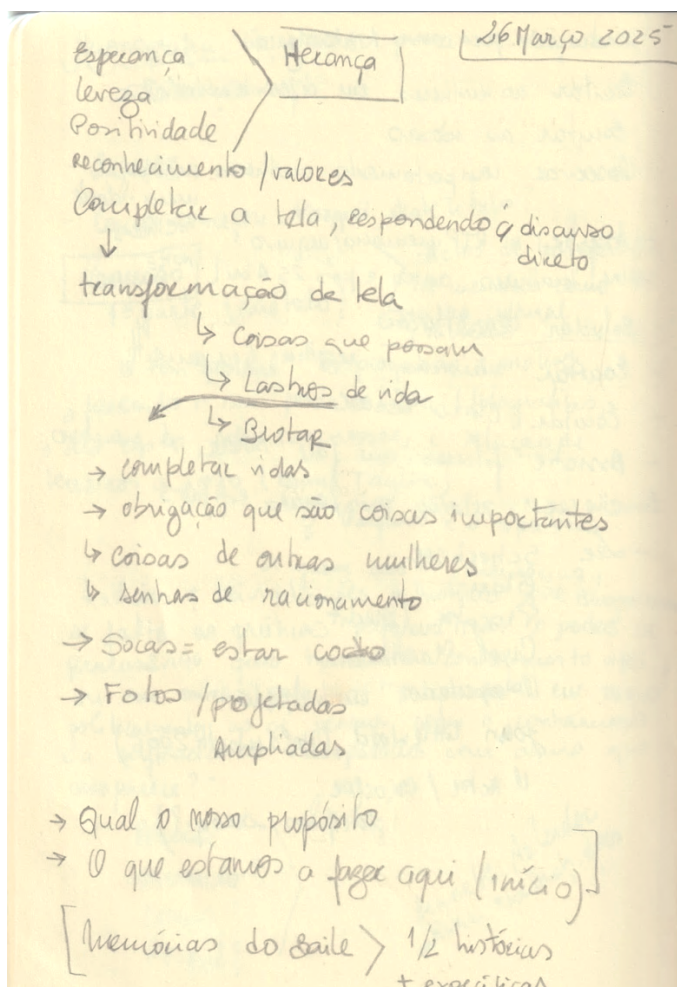 26 Março 2025
Esperança
leveza
Positividade
Herança
reconhecimento / valores
Completar a tela, respondendo à discurso
direto
↓
transformação da tela
↳ Coisas que possam
↳ Lastros de vida
↳ Brotar
→ completar vidas
→ obrigação que são coisas importantes
↳ coisas de outras mulheres
↳ senhas de racionamento
→ Socas = estar
→ Fotos / projetadas
Ampliadas
→ Qual o nosso propósito
→ O que estamos a fazer aqui (início)]
[Memórias do Baile > 1/2 histórias
+ específicas